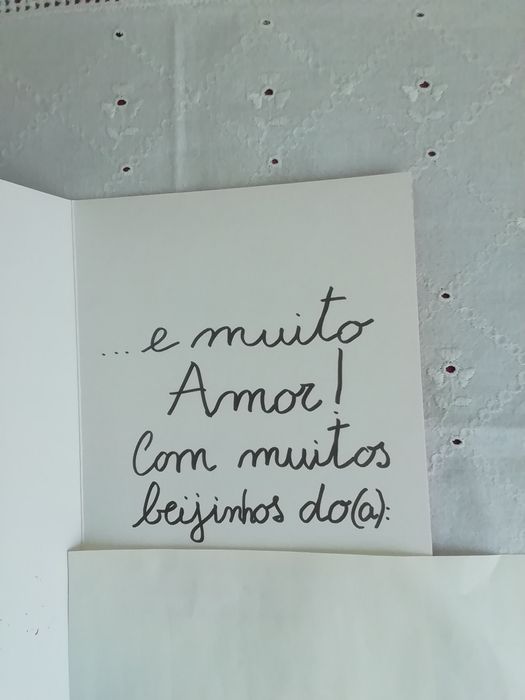 ...e muito
Amor!
Com muitos
beijinhos do(a):